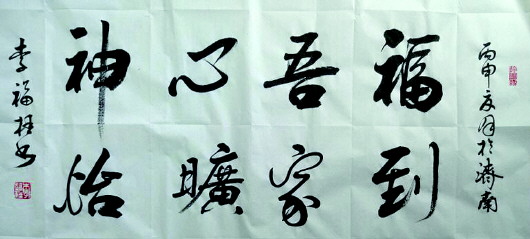 丙申夏月於濟南
福到
吾家
心曠
神怡
李福书